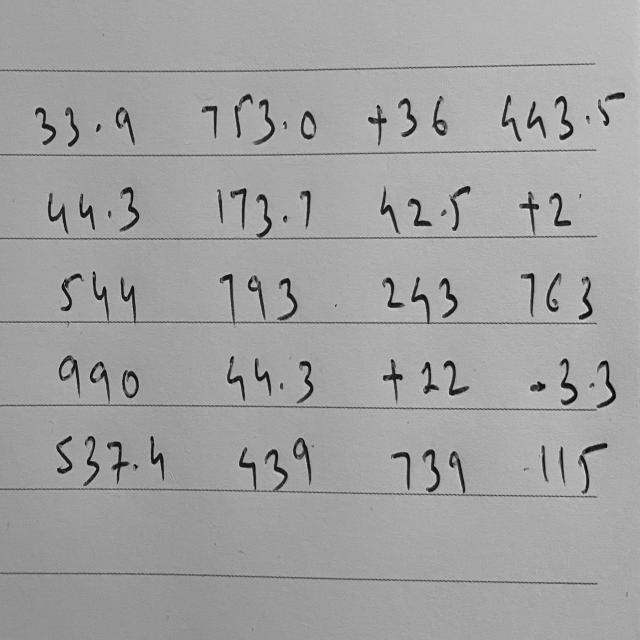 33.9 753.0 +36 443.5
44.3 173.7 42.5 +2
544 793 243 763
990 44.3 +22 -3.3
537.4 439 739 115